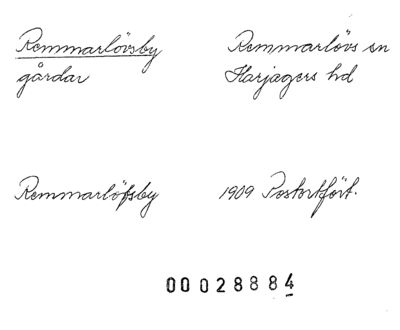 Remmarlövsby Remmarlövs sn
gårdar Harjagers hd
Remmarlöfsby 1909 Postortfört.
00028884